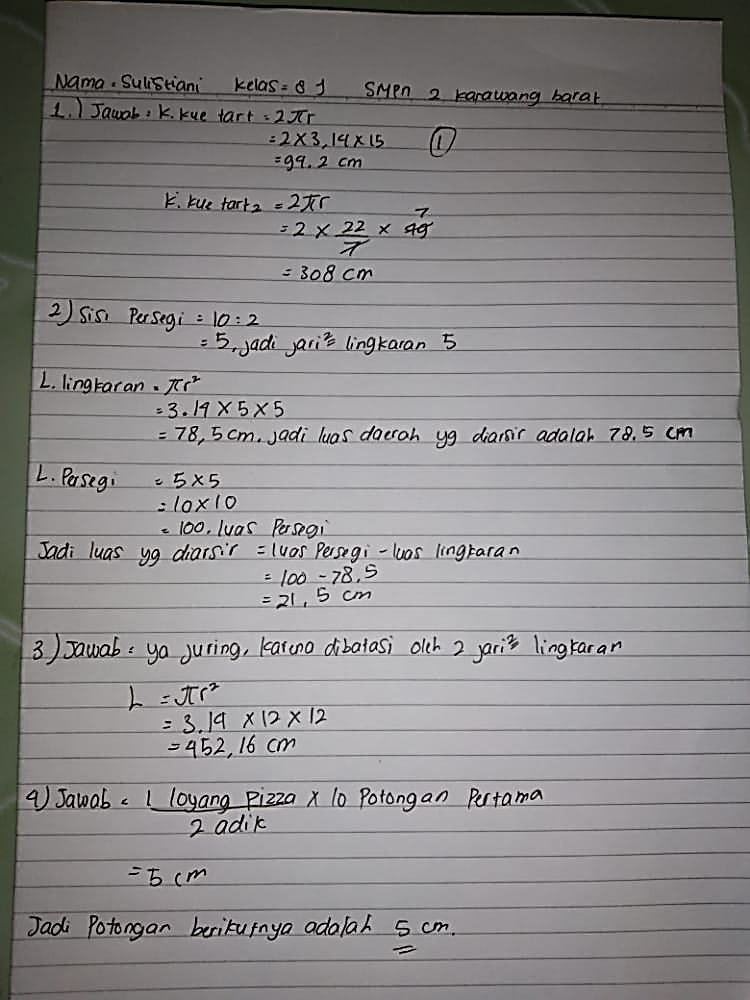 Nama = Sulistiani kelas = 8 J SMPn 2 karawang barat
1.) Jawab = K. kue tart = 2πr
= 2 x 3,14 x 15 ①
= 94.2 cm
K. kue tart2 = 2πr
= 2 x 22/7 x 49 7
= 308 cm
2) Sisi Persegi = 10 : 2
= 5, jadi jari² lingkaran 5
L. lingkaran = πr²
= 3.14 x 5 x 5
= 78,5 cm. jadi luas daerah yg diarsir adalah 78.5 cm
L. Persegi = 5 x 5
= 10 x 10
= 100. luas Persegi
Jadi luas yg diarsir = luas Persegi - luas lingkaran
= 100 - 78,5
= 21,5 cm
3) Jawab = ya juring, karena dibatasi oleh 2 jari² lingkaran
L = πr²
= 3.14 x 12 x 12
= 452,16 cm
4) Jawab = 1 loyang pizza x 10 Potongan Pertama
2 adik
= 5 cm
Jadi Potongan berikutnya adalah 5 cm.